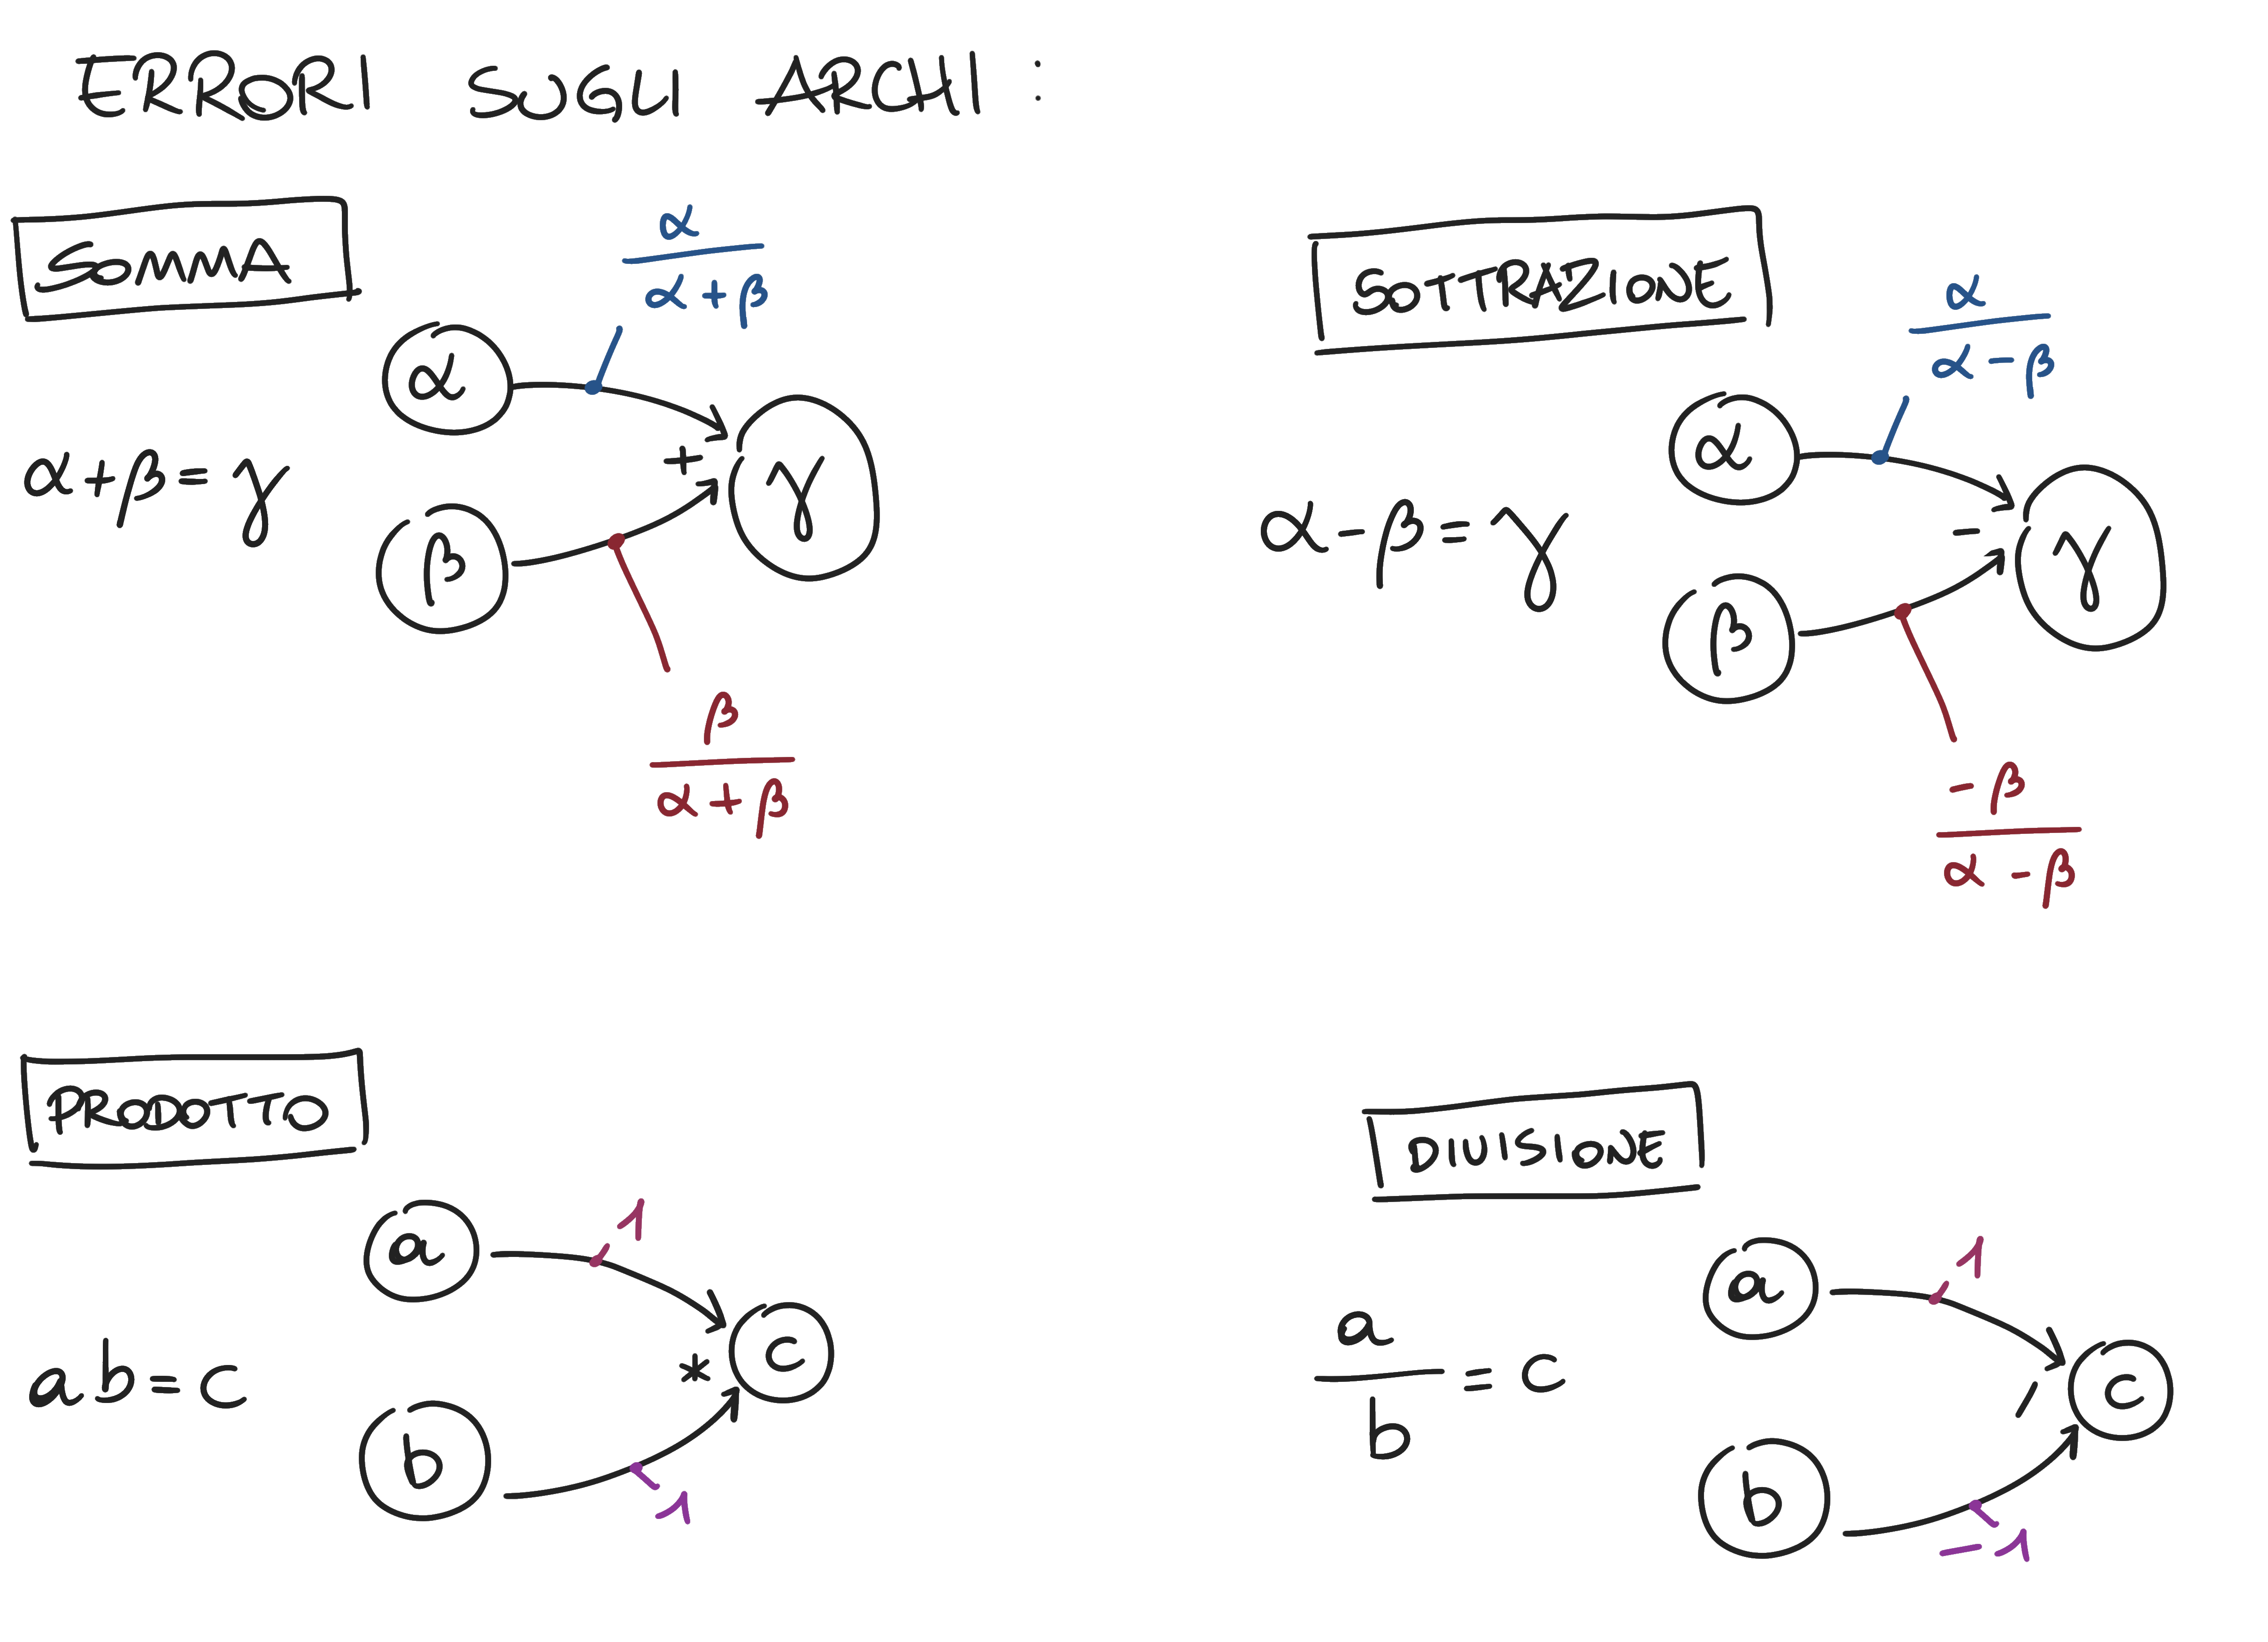 ERRORI SUGLI ARCHI :
SOMMA
α
α + β
α
α + β = γ
+
γ
β
β
α + β
SOTTRAZIONE
α
α - β
α
α - β = γ
-
γ
β
- β
α - β
PRODOTTO
a
1
ab = c
*
c
b
1
DIVISIONE
a
1
a
b
= c
/
c
b
-1